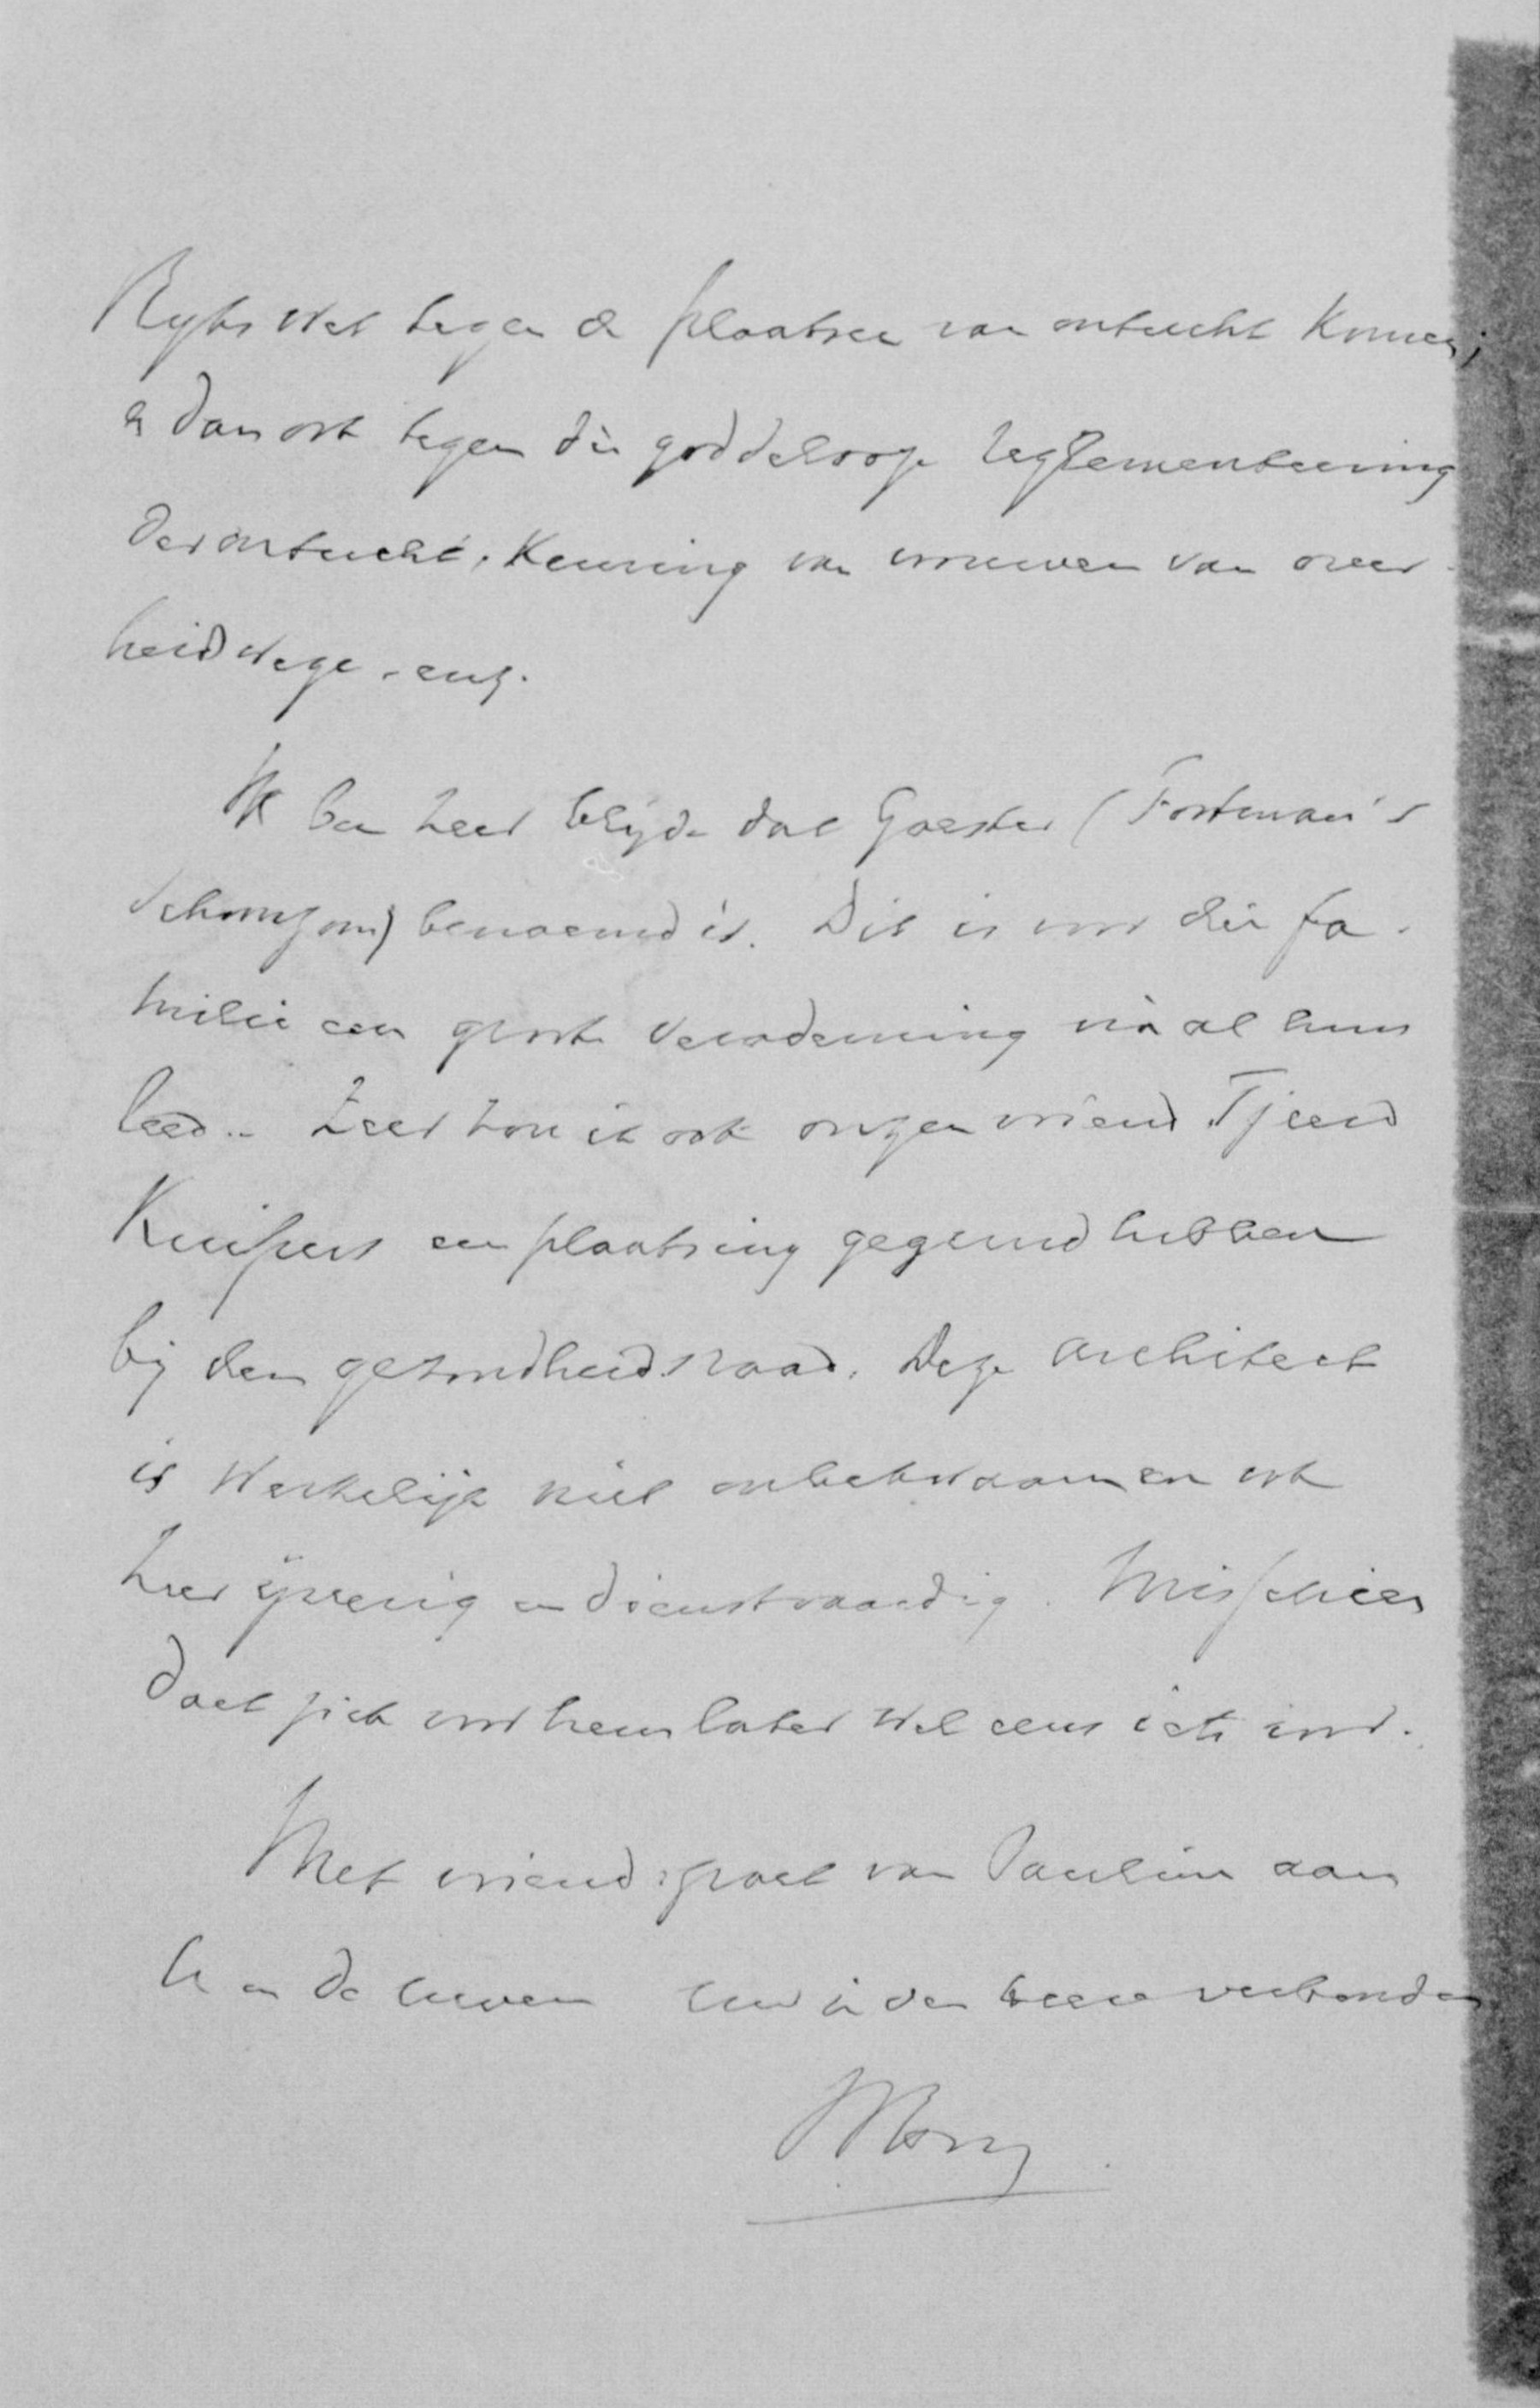 Ryks Wet tegen de plaatsen van ontucht komen;
en dan ook tegen die goddelooze reglementeering
der ontucht, keuring van vrouwen van over-
heidswege, enz.
Ik ben zeer blijde dat Goester (Fortman's
schoonzoon) benoemd is. Dit is voor die fa-
milie een groote verademing nà al hun
leed. Zeer zou ik ook onzen vriend Tjeerd
Kuipers een plaatsing gegund hebben
bij den gezondheidsraad. Deze architect
is werkelijk niet onbekwaam en ook
zeer ijverig en dienstvaardig. Misschien
doet zich voor hem later wel eens iets voor.
Met vriend. groet van Pauline aan
U en de Uwen Uw in den Heere verbonden